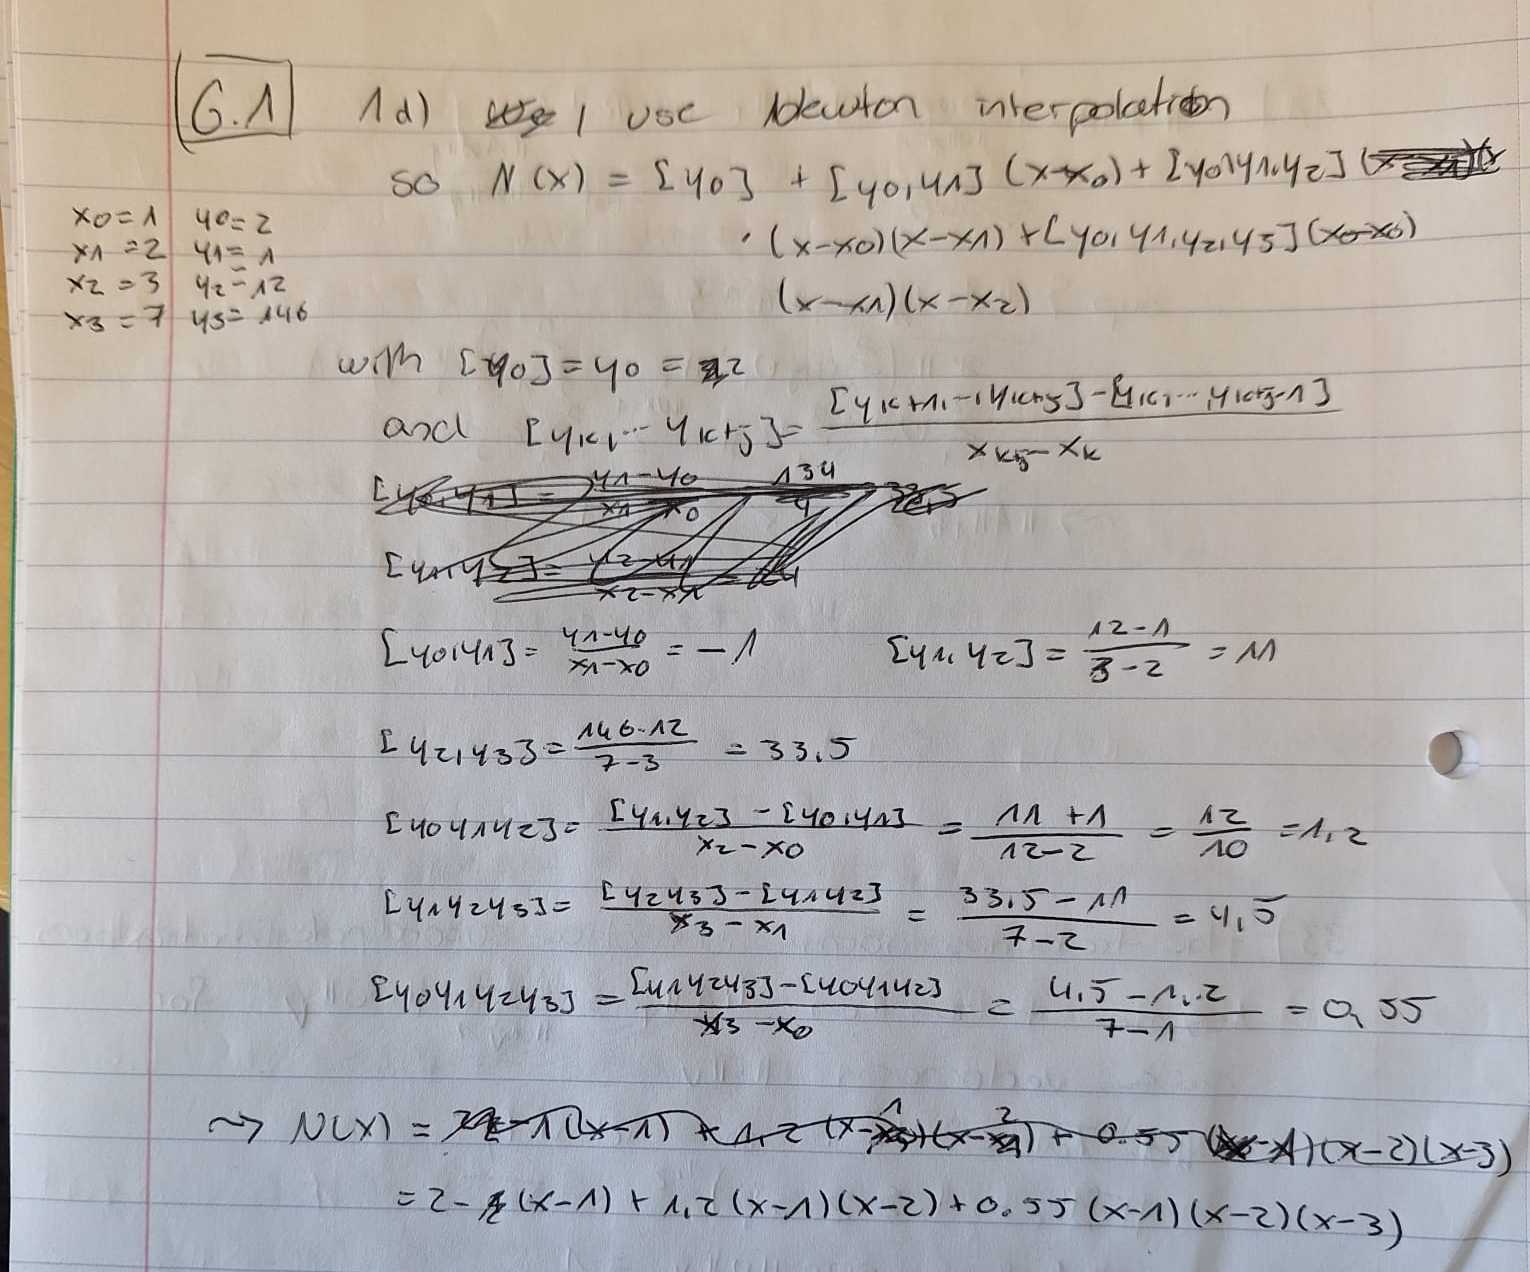 G.1 1d) I use Newton interpolation
so N(x) = [y0] + [y0,y1] (x-x0) + [y0,y1,y2]
·(x-x0)(x-x1) + [y0,y1,y2,y3](x0-x0)
(x-x1)(x-x2)
x0=1 y0=2
x1=2 y1=1
x2=3 y2=12
x3=7 y3=146
with [y0]=y0=2
and [yk,... yk+j]= [yk+1,...,yk+j]-[yk,...,yk+j-1] / xkj-xk
[y0,y1] = y1-y0 / x1 x0 134 / 4
[y1,y2] = y2-y1 / x2-x1
[y0,y1]= y1-y0 / x1-x0 = -1 [y1,y2] = 12-1 / 3-2 = 11
[y2,y3]= 146-12 / 7-3 = 33,5
[y0y1y2]= [y1,y2] - [y0,y1] / x2-x0 = 11+1 / 12-2 = 12 / 10 =1,2
[y1y2y3]= [y2y3]-[y1y2] / x3-x1 = 33,5-11 / 7-2 = 4,5
[y0y1y2y3] = [y1y2y3]-[y0y1y2] / x3-x0 = 4,5-1,2 / 7-1 = 0,55
⇝ N(x) = -1(x-1) + 1,2 (x-1)(x-2) + 0.55 (x-1)(x-2)(x-3)
=2- (x-1) + 1,2(x-1)(x-2)+0.55 (x-1)(x-2)(x-3)